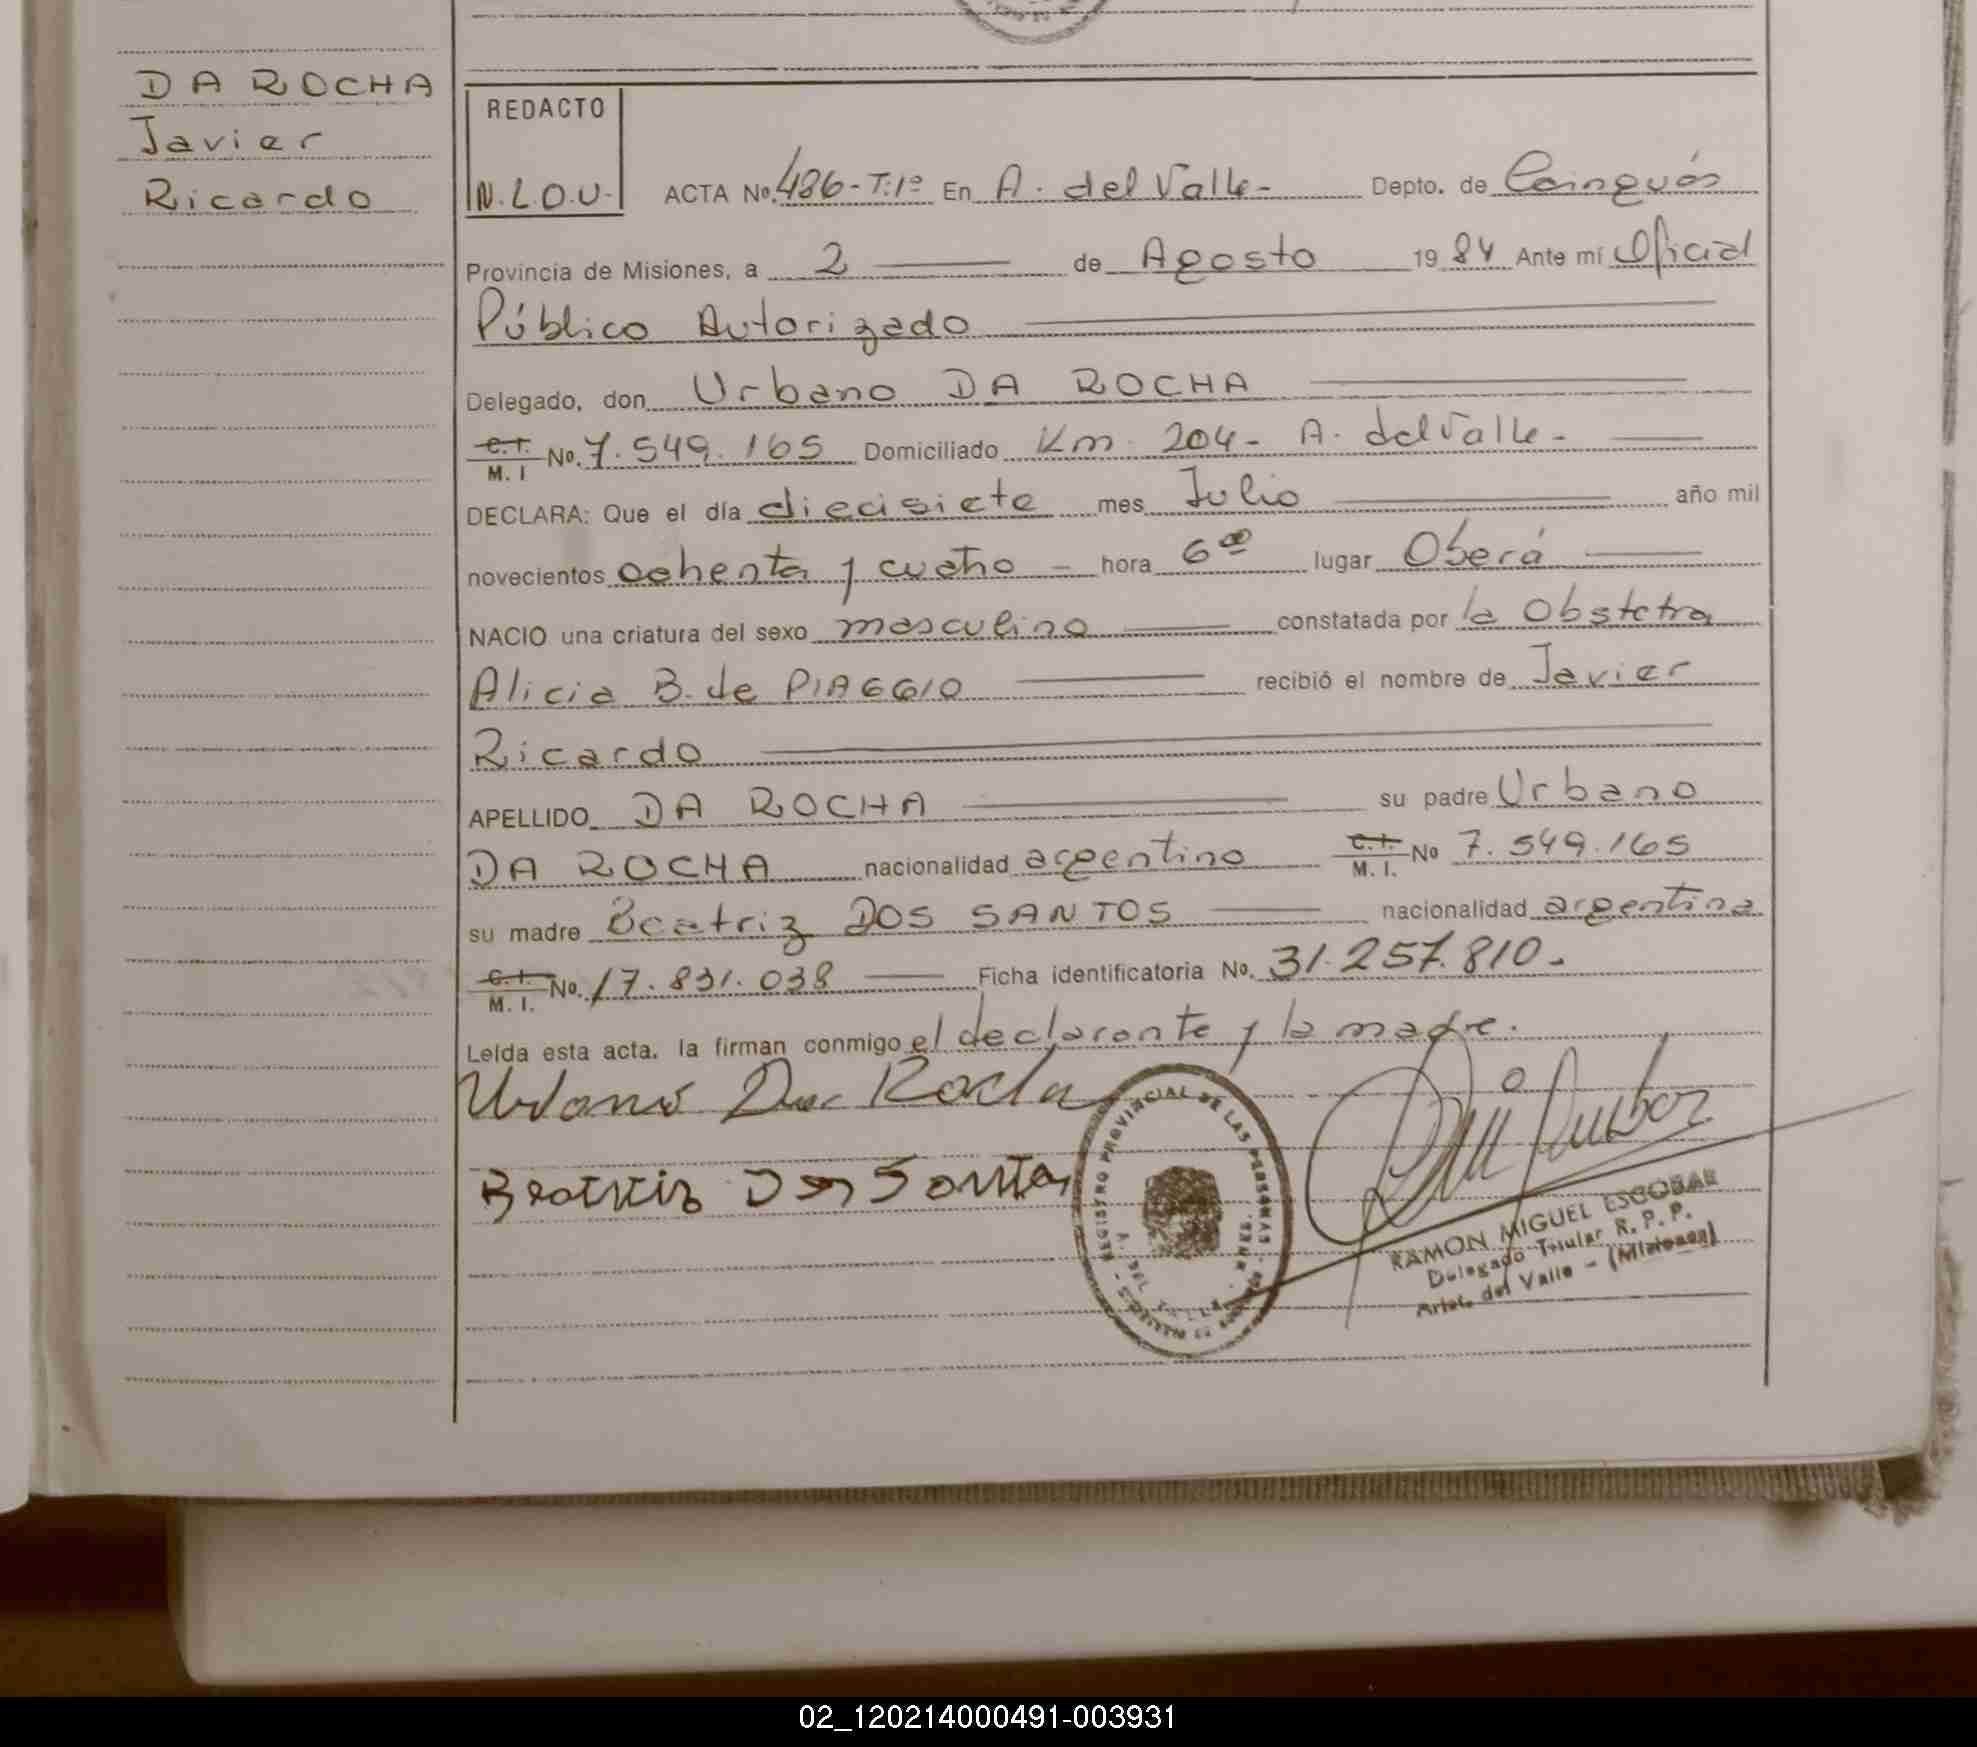 DA ROCHA
Javier
Ricardo
REDACTO
N.L.O.U.
ACTA No. 486-T:1º En A. del Valle- Depto. de Cainguás
Provincia de Misiones, a 2 de Agosto 1984 Ante mí Oficial
Público Autorizado
Delegado, don Urbano DA ROCHA
C.I. M.I No. 7.549.165 Domiciliado Km. 204- A. del Valle-
DECLARA: Que el día diecisiete mes Julio año mil
novecientos ochenta y cuatro - hora 6 00 lugar Oberá
NACIO una criatura del sexo masculino constatada por la Obstetra
Alicia B. de PIAGGIO recibió el nombre de Javier
Ricardo
APELLIDO DA ROCHA su padre Urbano
DA ROCHA nacionalidad argentino C.I. M.I. No 7.549.165
su madre Beatriz DOS SANTOS nacionalidad argentina
C.I. M.I. No. 17.831.038 Ficha identificatoria No. 31.257.810.
Leída esta acta. la firman conmigo el declarante y la madre.
Urbano Da Rocha
Beatriz Dos Santos
REGISTRO PROVINCIAL DE LAS PERSONAS
A. DEL VALLE
RAMON MIGUEL ESCOBAR
Delegado Titular R.P.P.
Aristo. del Valle - (Misiones)
02_120214000491-003931